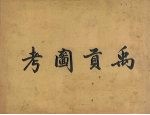 禹貢圖考